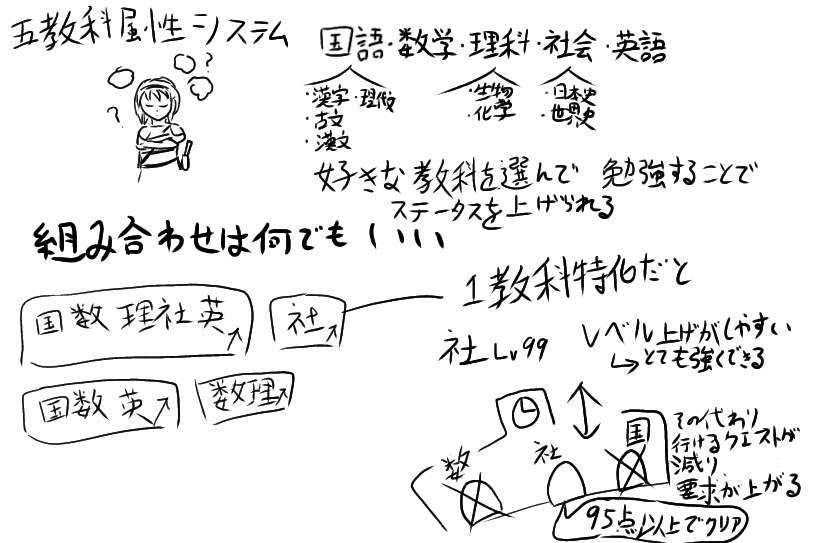 五教科属性システム
国語・数学・理科・社会・英語
・漢字・現代文
・古文
・漢文
・生物
・化学
・日本史
・世界史
? ?
好きな教科を選んで 勉強することで
ステータスを上げられる
組み合わせは何でもいい
国数理社英↗
社↗
国数英↗
数理↗
1教科特化だと
社Lv99
レベル上げがしやすい
↳とても強くできる
数
社
国
その代わり
行けるクエストが
減り
要求が上がる
95点以上でクリア